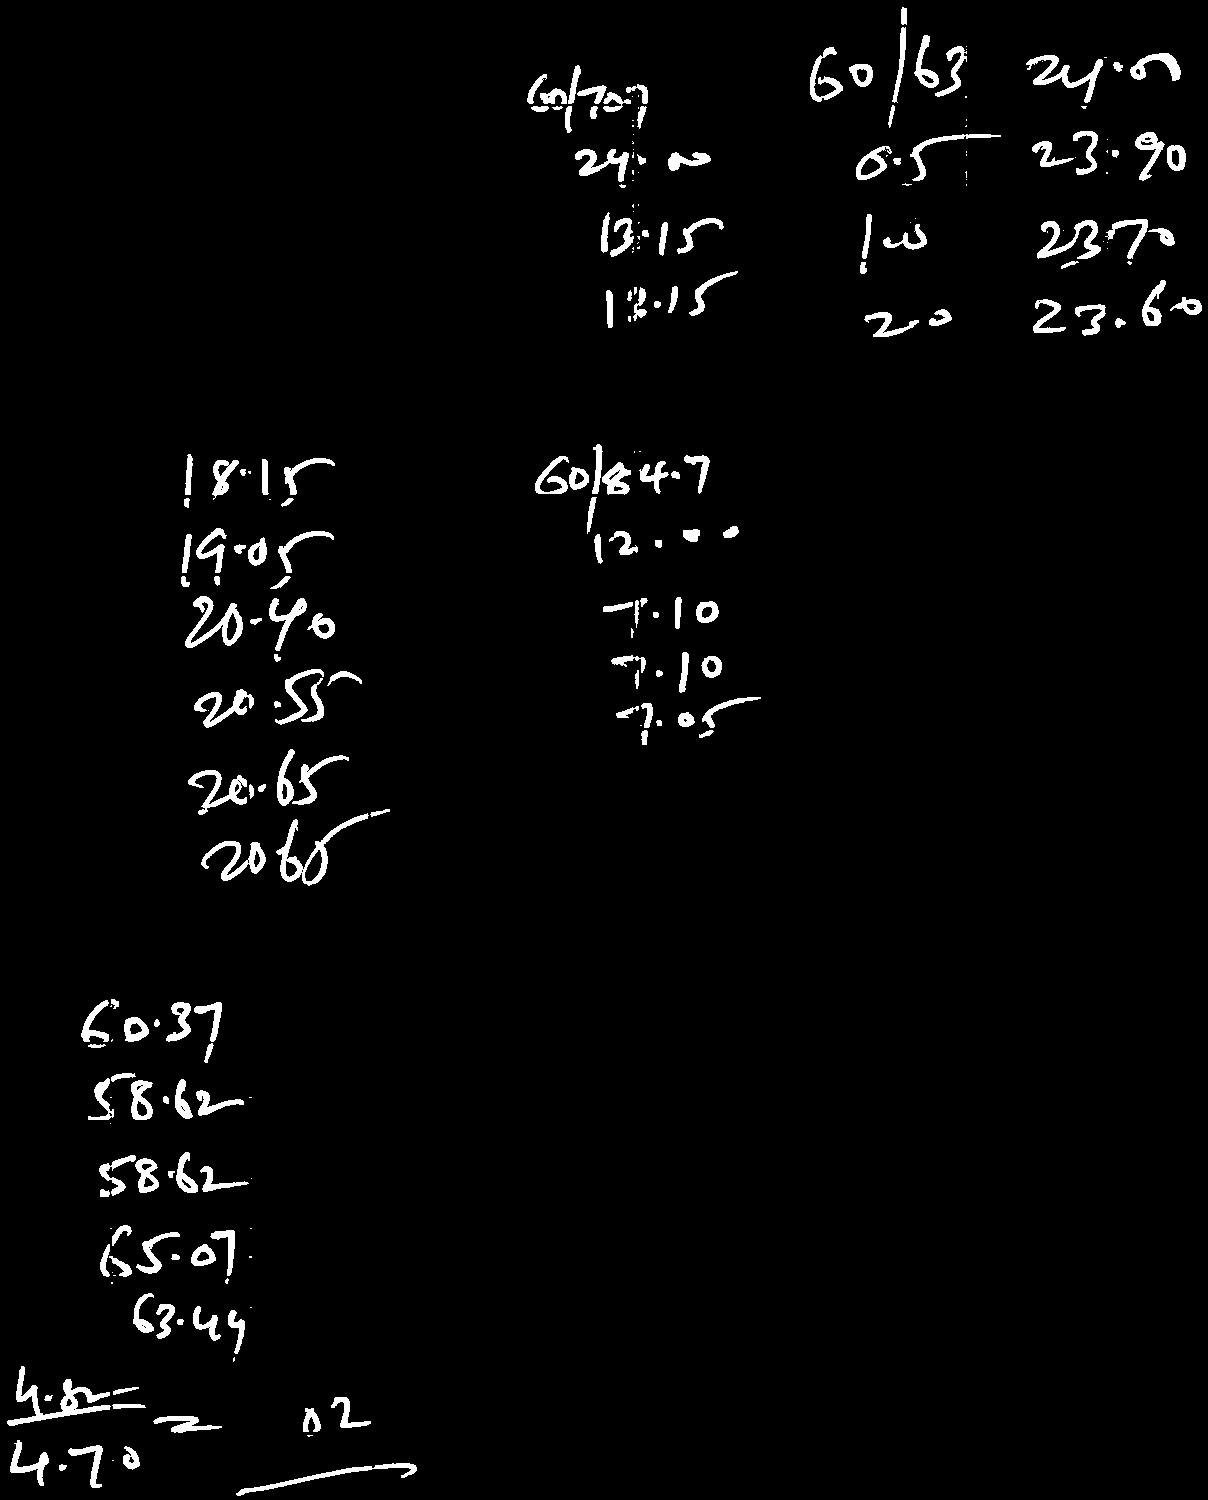 60/70.7
24.00
13.15
13.15
60/63 24.0
0.5 23.90
1.0 2370
2.0 23.60
18.15
19.05
20.40
20.55
20.65
2065
60/84.7
12.00
7.10
7.10
7.05
60.37
58.62
58.62
65.07
63.44
4.82
4.70 = 02